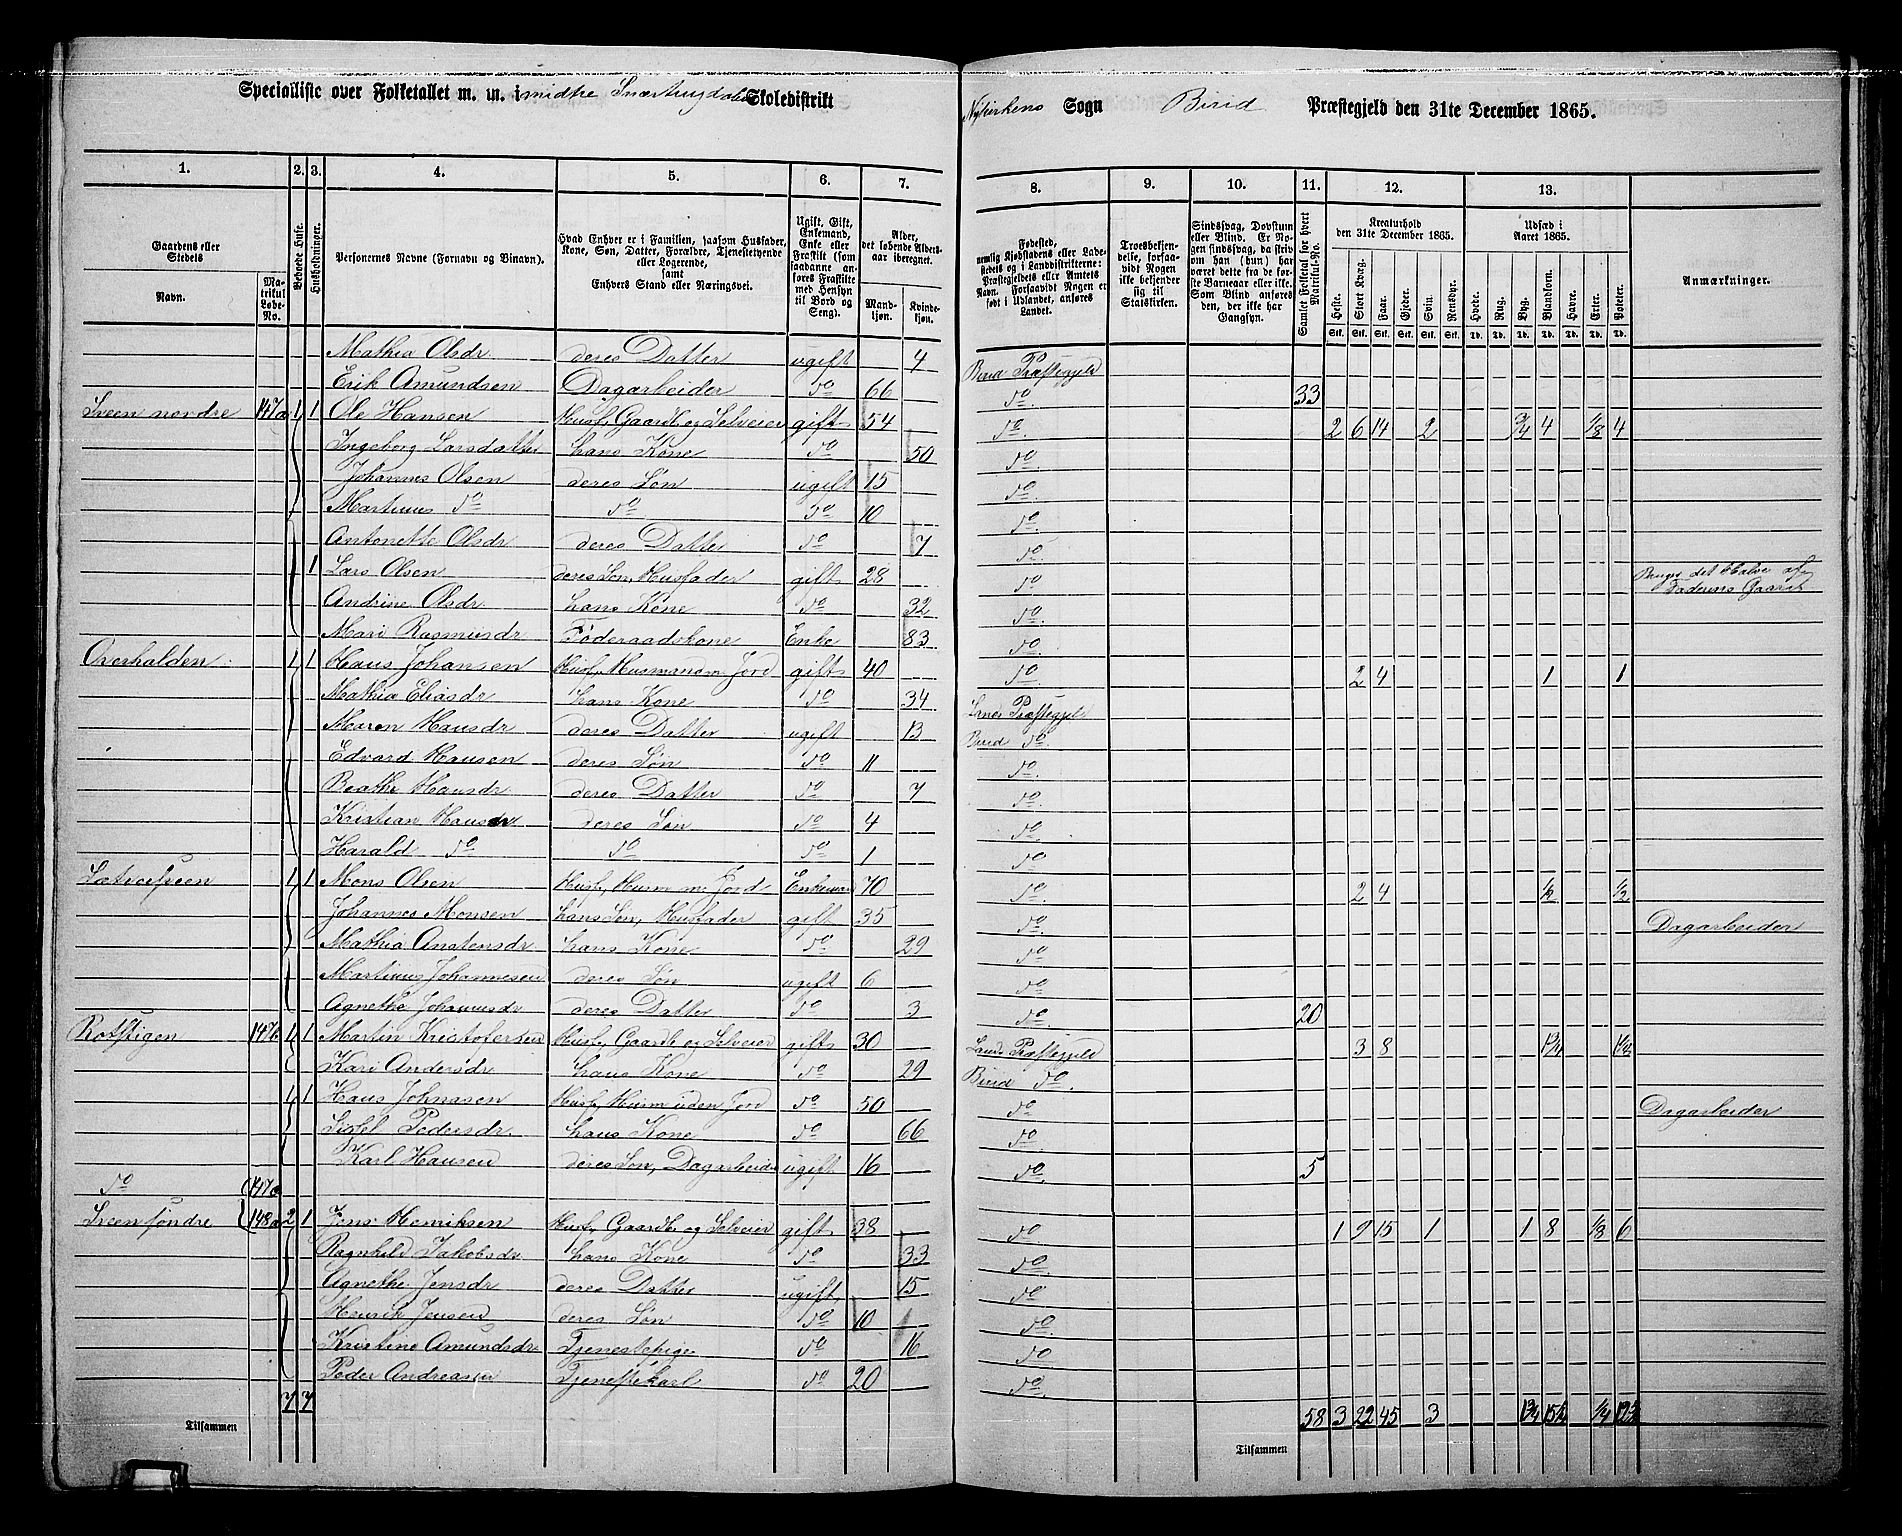 Specialliste over Folketallet m. m. i midtre Snærtrugdalens Skoledistrikt
Nykirkens Sogn Birid Præstegjeld den 31te December 1865.
1. 2. 3. 4. 5. 6. 7.
8. 9. 10. 11. 12. 13.
Gaardens eller Stedets Navn. Matrikul Løbe-No. Beboede Huse. Husholdninger. Personernes Navne (Fornavn og Binavn). Hvad Enhver er i Familien, saasom Husfader, Kone, Søn, Datter, Forældre, Tjenestetyende eller Logerende, samt Enhvers Stand eller Næringsvei. Ugift, Gift, Enkemand, Enke eller Fraskilt (som saadanne anføres Fraskilte med Hensyn til Bord og Seng). Alder, det løbende Alders-aar iberegnet. Mandkjøn. Kvindekjøn.
Fødested, nemlig Kjøbstadens eller Ladestedets og i Landdistrikterne: Præstegjeldets eller Amtets Navn. Forsaavidt Nogen er født i Udlandet, anføres Landet. Troesbekjendelse, forsaavidt Nogen ikke bekjender sig til Statskirken. Sindssvag, Døvstum eller Blind. Er Nogen sindssvag, da skrives han (hun) har været dette fra de første Barneaar eller ikke. Som Blind anføres den, der ikke har Gangsyn. Samlet Folketal for hvert Matrikul-No. Kreaturhold den 31te December 1865. Udsæd i Aaret 1865. Anmærkninger.
Heste. Stort Kvæg. Faar. Gjeder. Svin. Rensdyr. Hvede. Rug. Byg. Blandkorn. Havre. Erter. Poteter.
Stk. Stk. Stk. Stk. Stk. Stk. Td. Td. Td. Td. Td. Td. Td.
Mathia Olsdr deres Datter ugift 4 Birid Præstegjeld
Erik Amundsen Dagarbeider do 66 do. 33
Sveen nordre 147a 1 1 Ole Hansen Husf, Gaardb og Selveier gift 54 do. 2 6 14 2 3/4 4 1/8 4
Ingeborg Larsdatter hans Kone do 50 do.
Johannes Olsen deres Søn ugift 15 do.
Martinus do do do 10 do.
Antonette Olsdr deres Datter do 7 do
1 Lars Olsen deres Søn, Husfader gift 28 do Bruger det Halve af Faderens Gaard
Andrine Olsdr hans Kone do 32 do.
Mari Rasmusdr Føderaadskone Enke 83 do.
Overhalden: 1 1 Hans Johansen Husf, Husmand m. Jord gift 40 do. 2 4 1 1
Mathia Eliasdr hans Kone do 34 Lands Præstegjeld
Maren Hansdr deres Datter ugift 13 Birid do
Edvard Hansen deres Søn do 11 do.
Beathe Hansdr deres Datter do 7 do.
Kristian Hansen deres Søn do 4 do.
Harald do do do 1 do.
1 1 Mons Olsen Husf, Husm m. Jord Enkemand 70 do. 2 4 1/2 1/2
Johannes Monsen hans Søn, Husfader gift 35 do. Dagarbeider
Mathia Anstensdr hans Kone do 29 do.
Martinus Johannesen deres Søn ugift 6 do.
Agnethe Johannsdr deres Datter do 3 do. 20
Rotstigen 147b 1 1 Martin Kristofersen Husf, Gaardb og Selveier gift 30 Lands Præstegjeld 3 8 1 3/4 1 1/2
Kari Andersdr hans Kone do 29 Birid do.
1 1 Hans Johnasen Husf, Husm uden Jord do 50 do. Dagarbeider
Sidsel Pedersdr. hans Kone do 66 do.
Karl Hansen deres Søn, Dagarbeider ugift 16 do. 5
do 147c
Sveen søndre 148a 2 1 Jens Henriksen Husf, Gaardb og Selveier gift 38 do. 1 9 15 1 1 8 1/8 6
Ragnhild Jakobsdr hans Kone do 33 do.
Agnethe Jensdr deres Datter ugift 15 do.
Henrik Jensen deres Søn do 10 do.
Kristine Amundsdr Tjenestepige do 16 do
Peder Andreassen Tjenestekarl do 20 do.
7 7 58 3 22 45 3 1 3/4 15 1/4 1/4
Tilsammen
Tilsammen